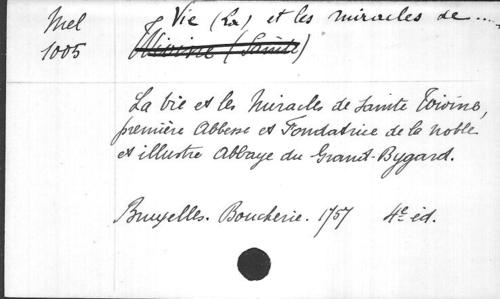 Mel
1005
Vie (La) et les miracles de ....
Wivine (Sainte)
La vie et les Miracles de Sainte Wivine,
première Abbesse et Fondatrice de la noble
et illustre Abbaye du Grand-Bygard.
Bruxelles. Boucherie. 1757 4e éd.